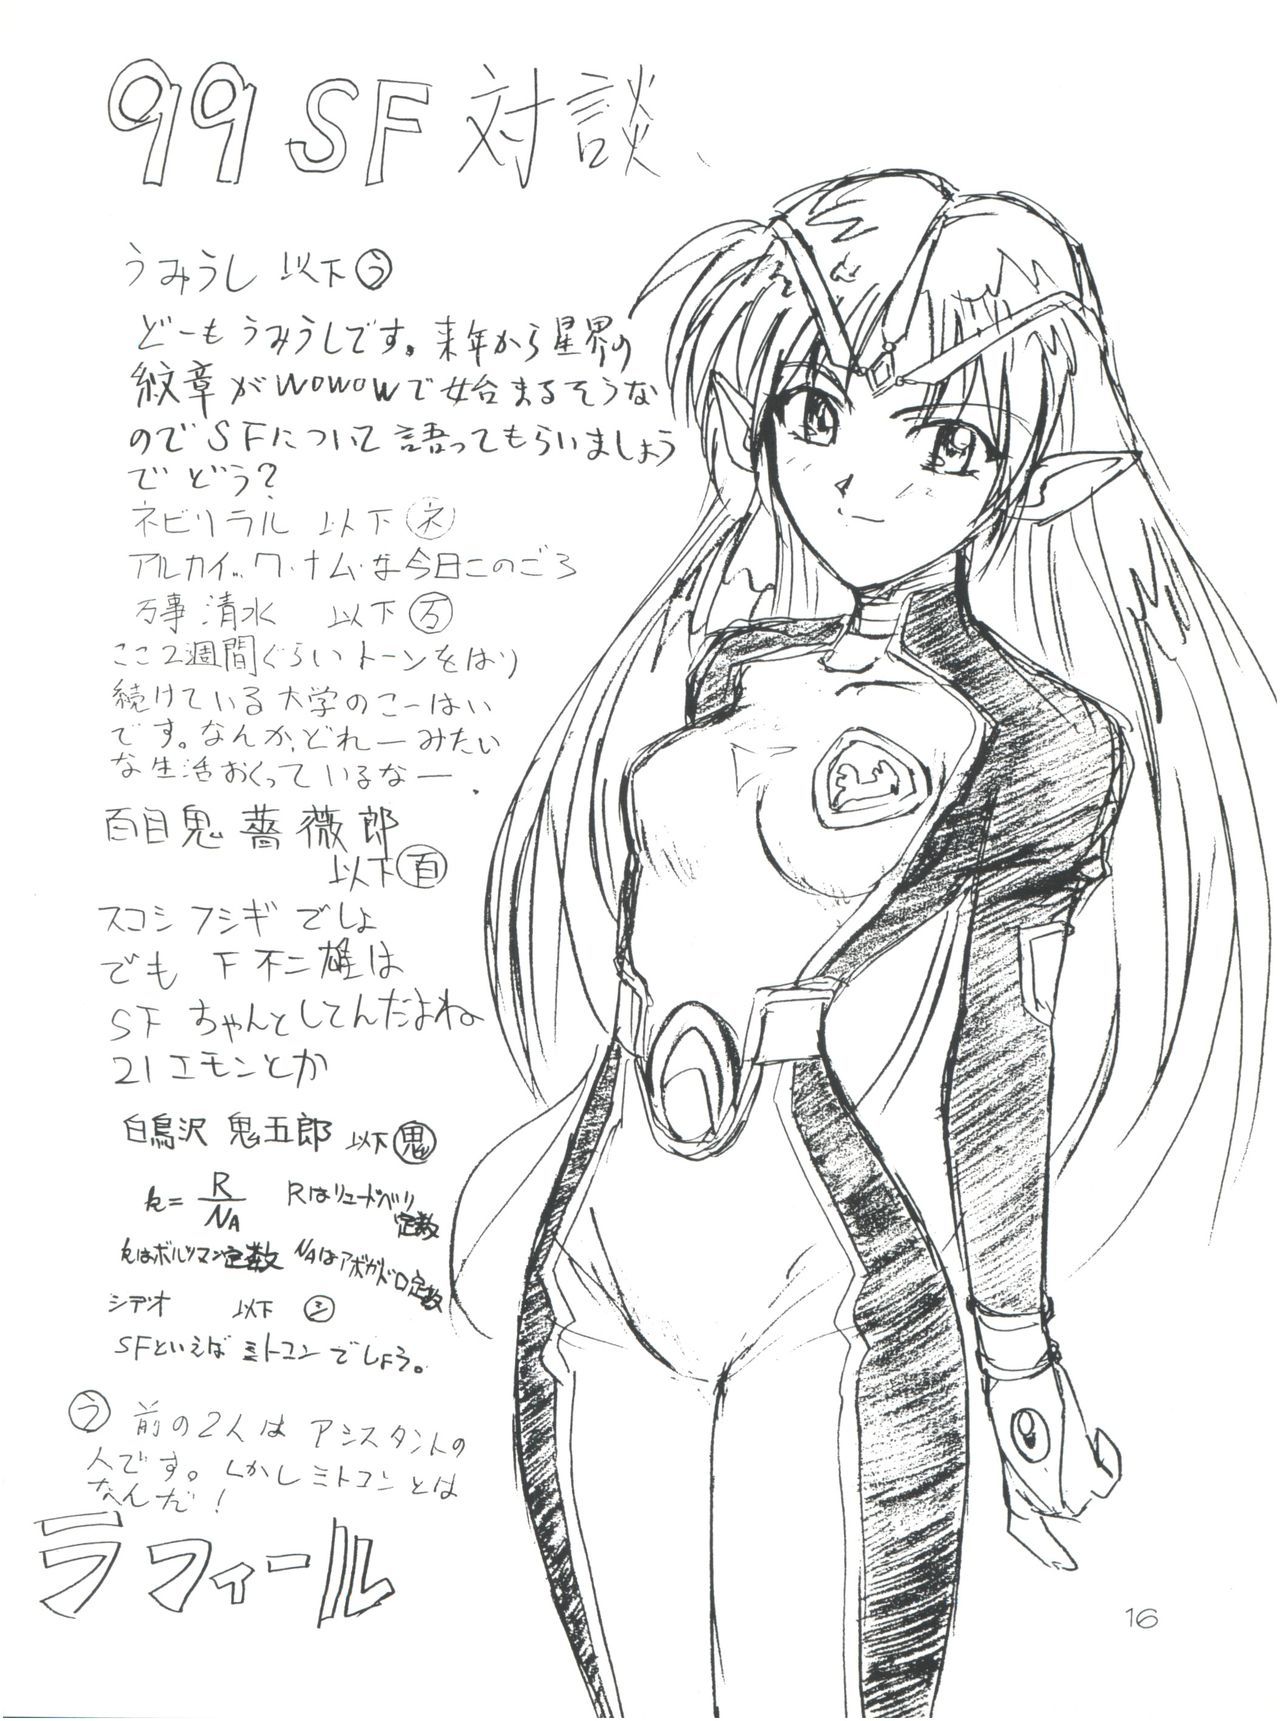 99 SF 対談、
うみうし 以下う
どーもうみうしです。来年から星界の
紋章がWOWOWで始まるそうな
のでSFについて語ってもらいましょう
でどう?
ネビリラル 以下ネ
アルカイック・ナム・な今日このごろ
万事 清水 以下万
ここ2週間ぐらいトーンをはり
続けている大学のこーはい
です。なんか、どれーみたい
な生活おくっているなー.
百目鬼 薔薇郎
以下百
スコシフシギでしょ
でも 下不二雄は
SFちゃんとしてんだよね
21エモンとか
白鳥沢 鬼五郎 以下鬼
k = R/NA Rはリュードベリ定数
kはボルツマン定数 NAはアボガドロ定数
シデオ 以下シ
SFといえばミトコンでしょう。
う 前の2人はアシスタントの
人です。しかしミトコンとは
なんだ!
ラフィール
16